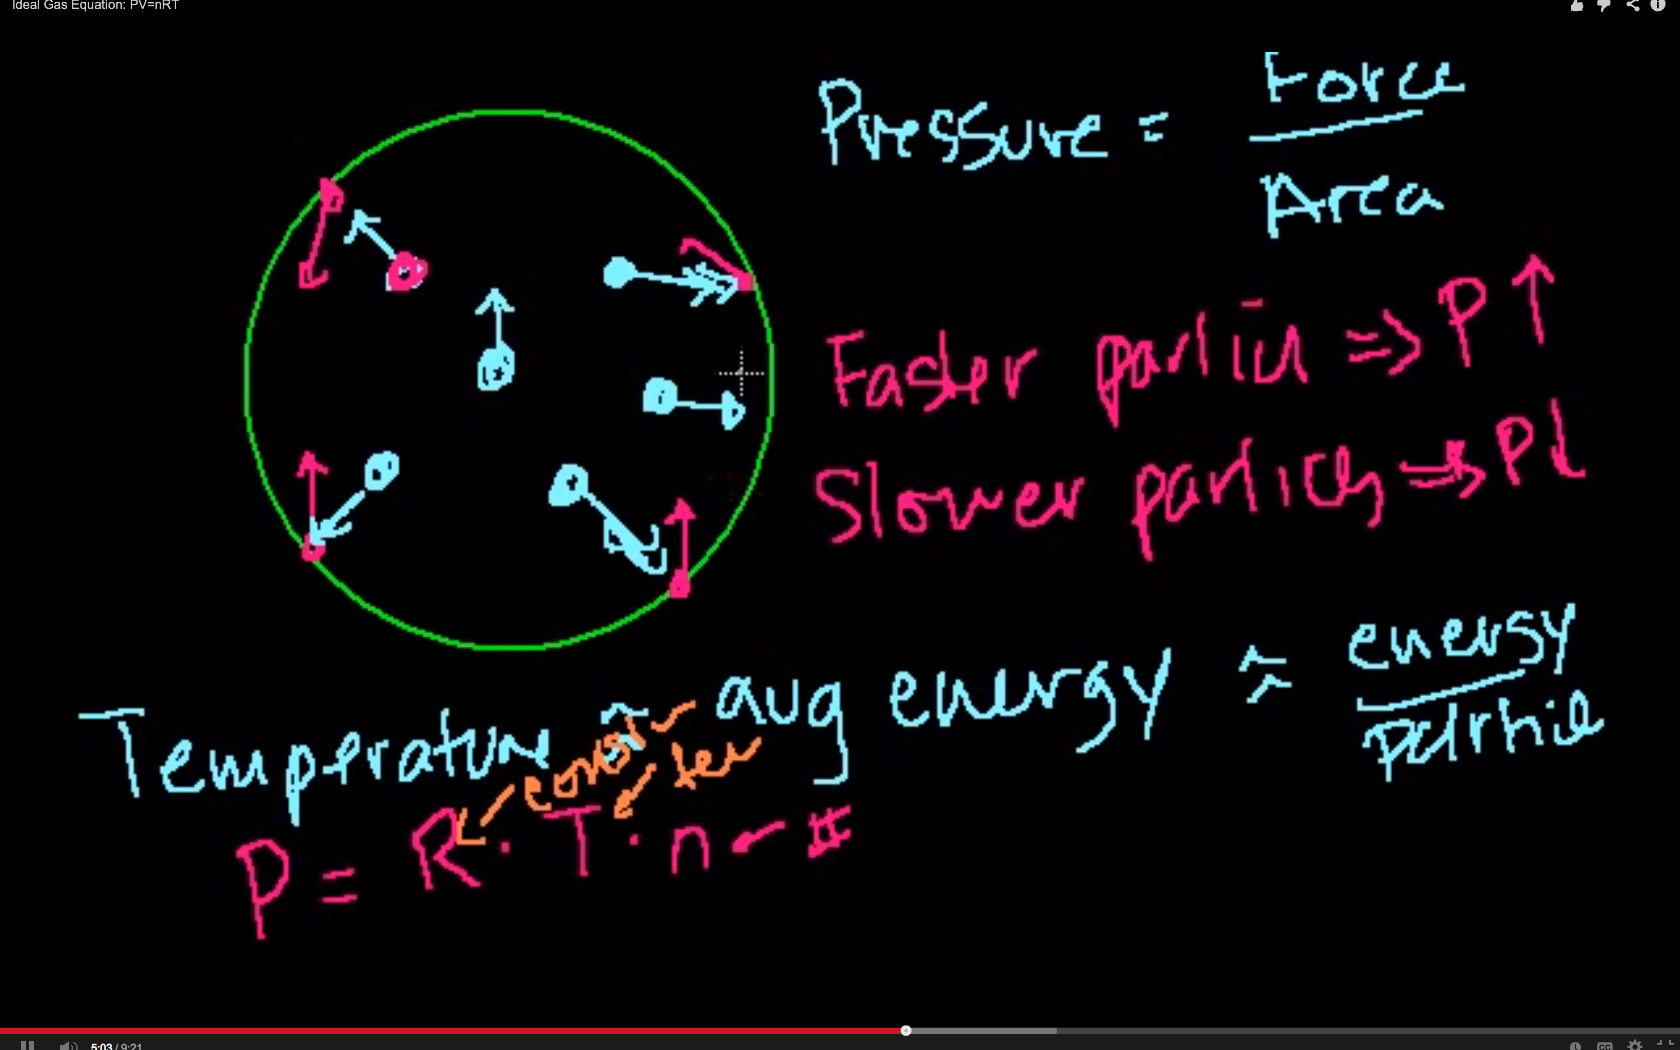 Ideal Gas Equation: PV=nRT
Pressure = Force
Area
Faster particl ⇒ P ↑
Slower particles ⇒ P ↓
Temperature ≈ avg energy ≈ energy
particle
const
tem
P = R · T · n #
5:03 / 9:21
CC